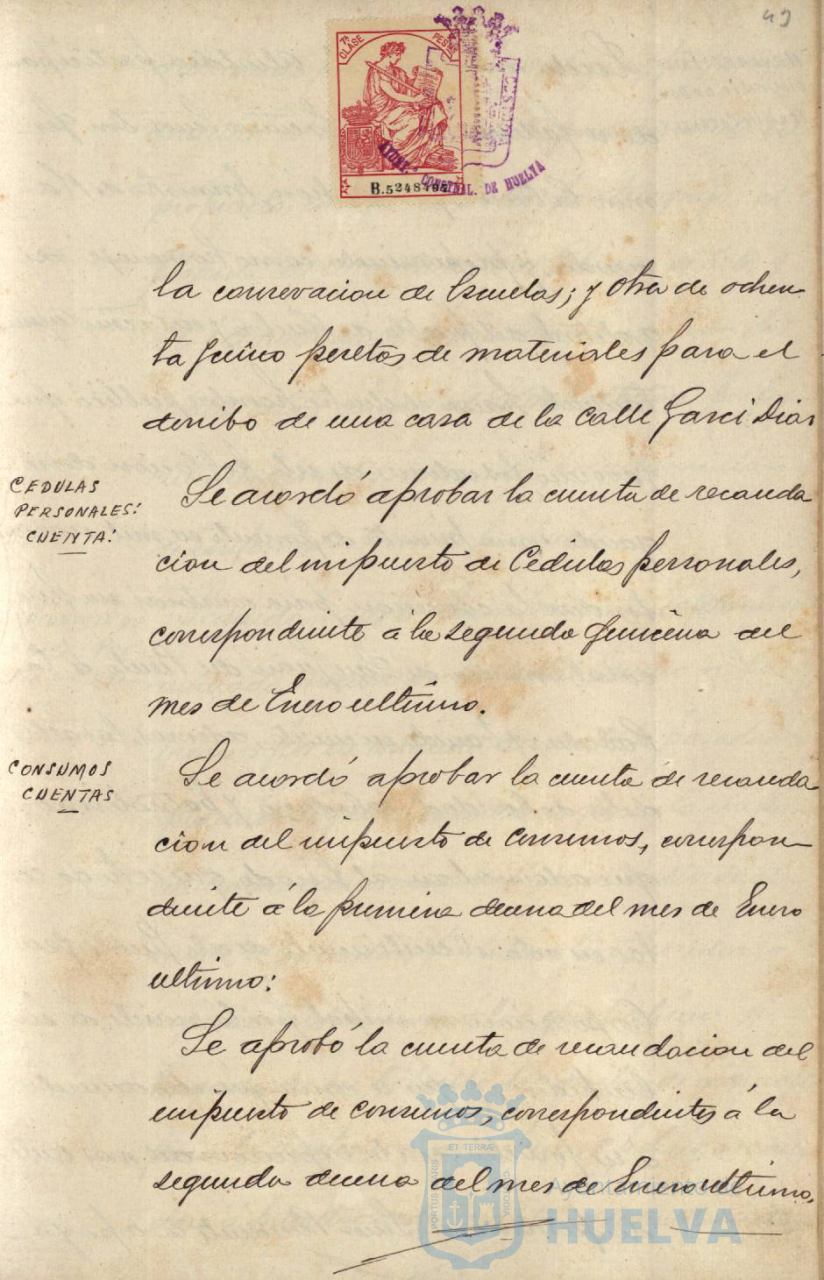 49
7ª CLASE PESETA
B.5248405
AYUNT.º CONSTNAL. DE HUELVA
la conservacion de Escuelas; y otra de ochen
ta y cinco pesetas de materiales para el
derribo de una casa de la Calle Garci Diaz
CEDULAS
PERSONALES:
CUENTA:
Se acordó aprobar la cuenta de recauda
cion del impuesto de Cedulas personales,
correspondiente á la segunda quincena del
mes de Enero ultimo.
CONSUMOS
CUENTAS
Se acordó aprobar la cuenta de recauda
cion del impuesto de Consumos, correspon
diente á la primera decena del mes de Enero
ultimo:
Se aprobó la cuenta de recaudacion del
impuesto de consumos, correspondientes á la
segunda decena del mes de Enero ultimo,
ET TERRÆ
PORTUS MARIS
HUELVA